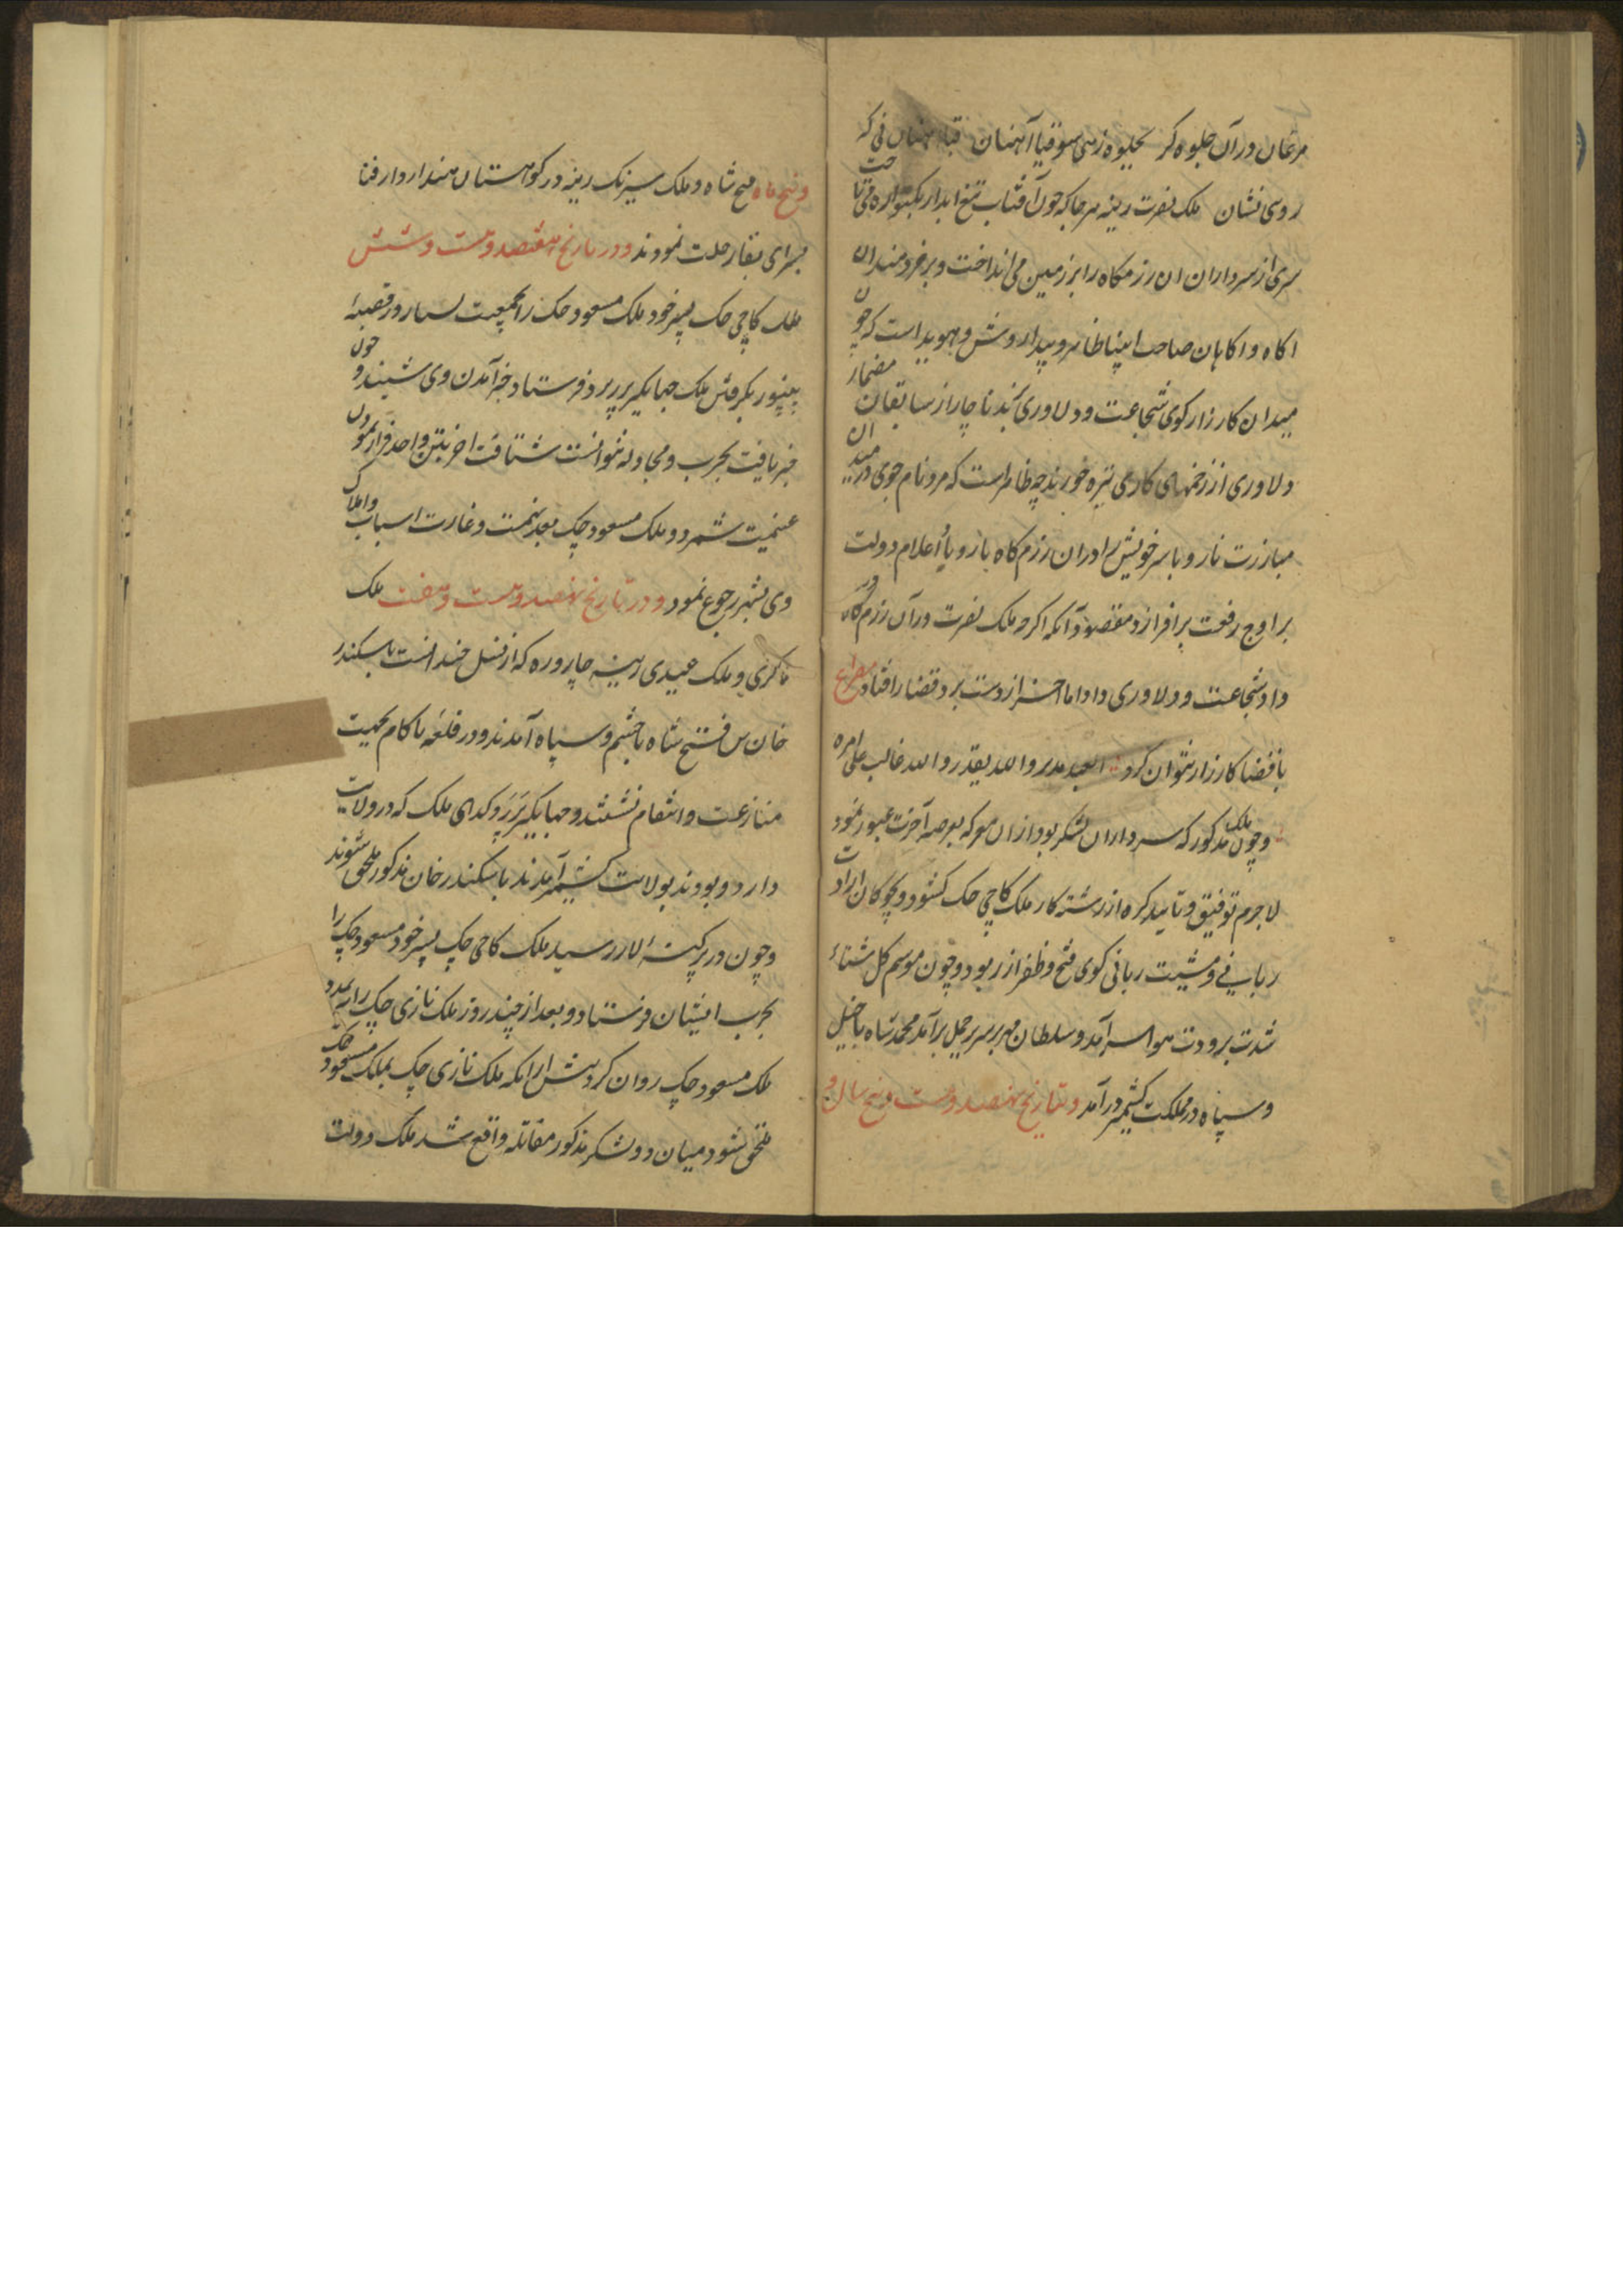 مرغان در آن جلوه‌گر بجلوه
روی نشان ملک نصرت رینه هر جا که چون آفتاب تیغ آبدار
سری از سرداران ان رزمگاه را بر زمین می انداخت و بر خردمندان
اکاه و اکاهان صاحب انتباه ظاهر و پیدا روشن و هویدا است که چون
میدان کارزار کوی شجاعت و دلاوری کند ناچار از سابقان مضمار
دلاوری از زخمهای کاری نیزه خورند چه ظاهر است که مرد نام جوی در میدان
مبارزت نازد یا سر خویش را در ان رزم کاه بازد یا اعلام دولت
بر اوج رفعت بر افرازد مقصود آنکه اکر چه ملک نصرت در آن رزم گاه
داد شجاعت و دلاوری داد اما آخر از دست برد قضا را افتاد مصراع
با قضا کارزار نتوان کرد العبد یدبر والله یقدر والله غالب علی امره
و چون ملک مذکور که سرداران لشکر بود از ان معرکه بعرصه آخرت عبور نمود
لاجرم توفیق و تایید کره از رشته کار ملک کاجی چک کشود و بچوکان ارادت
ربانی و مشیت ربانی کوی فتح و ظفر از ربود و چون موسم کل شتاء
شدت برودت هوا سر آمد و سلطان مهر بر سریر حمل بر آمد محمد شاه با خیل
و سپاه در مملکت کشمیر در آمد و بتاریخ نهصد و بیست و پنج سال و
و پنج ماه فتح شاه و ملک سیزنک رینه در کوهستان هند از دار فنا
بسرای بقا رحلت نمودند و در تاریخ نهصد و بیست و شش
ملک کاجی چک پسر خود ملک مسعود چک را بجمعیت بسیار در قصبه
بکرفتن ملک جهانکیر پدر فرستاد چون خبر آمدن وی شنید و
خبر یافت بحرب و مجادله نتوانست شتافت اخر بتن واحد فرار نمودن
غنیمت شمرد و ملک مسعود چک بعد نهمت و غارت اسباب و املاک
وی بشهر رجوع نمود و در تاریخ نهصد و بیست و هفت ملک
ماکری و ملک عیدی رینه چاروره که از نسل خندانست باسکندر
خان بن فتح شاه با حشم و سپاه آمدند و در قلعه ناکام بجهت
منازعت و انتقام نشستند و جهانکیر پدر و کدای ملک که در ولایت
دارد و بودند بولایت کشمیر آمدند با سکندر خان مذکور ملحق شوند
و چون در پرکنه لار رسید ملک کاجی چک پسر خود مسعود چک را
بحرب ایشان فرستاد و بعد از چند روز ملک نازی چک را بمدد
ملک مسعود چک روان کرد پیش از انکه ملک نازی چک بملک مسعود چک
ملحق شود میان دو لشکر مذکور مقاتله واقع شد ملک دولت